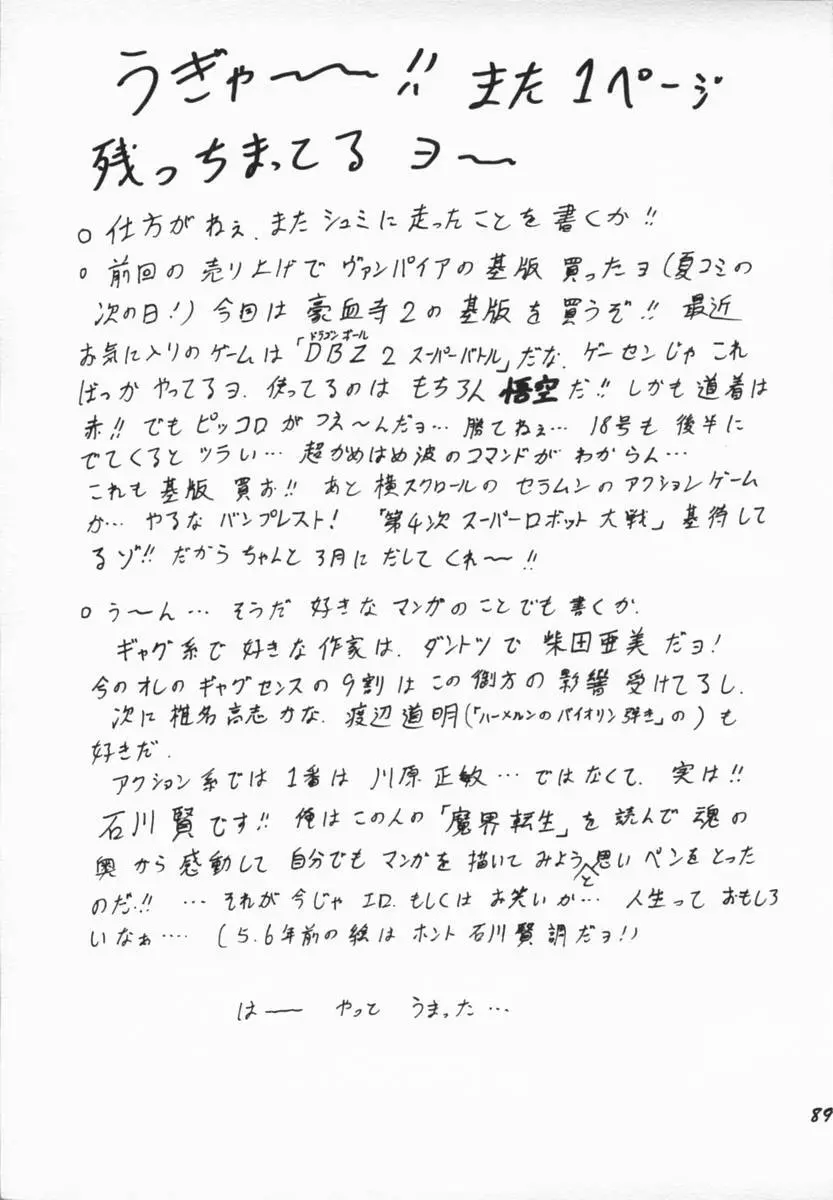 うぎゃ〜〜!! また1ページ
残っちまってるヨ〜
○仕方がねぇ、またシュミに走ったことを書くか!!
○前回の売り上げでヴァンパイアの基版買ったヨ(夏コミの
次の日!)今回は豪血寺2の基版を買うぞ!! 最近
お気に入りのゲームは「DBZ2スーパーバトル」だな、ゲーセンじゃこれ
ドラゴンボール
ばっかやってるヨ、使ってるのはもちろん悟空だ!!しかも道着は
赤!!でもピッコロがつえ〜んだョ…勝てねぇ…18号も後半に
でてくるとツラい…超かめはめ波のコマンドがわからん…
これも基版買お!!あと横スクロールのセラムンのアクションゲーム
か…やるなバンプレスト!「第4次スーパーロボット大戦」基待して
るゾ!!だからちゃんと3月にだしてくれ〜!!
○う〜ん…そうだ好きなマンガのことでも書くか、
ギャグ系で好きな作家は、ダントツで柴田亜美だョ!
今のオレのギャグセンスの9割はこの御方の影響受けてるし、
次に椎名高志かな、渡辺道明(「ハーメルンのバイオリン弾き」の)も
好きだ、
アクション系では1番は川原正敏…ではなくて、実は!!
石川賢です!!俺はこの人の「魔界転生」を読んで魂の
奥から感動して自分でもマンガを描いてみようと思いペンをとった
のだ!!…それが今じゃエロ、もしくはお笑いか…人生っておもしろ
いなぁ…(5、6年前の絵はホント石川賢調だョ!)
はーーやってうまった…
89